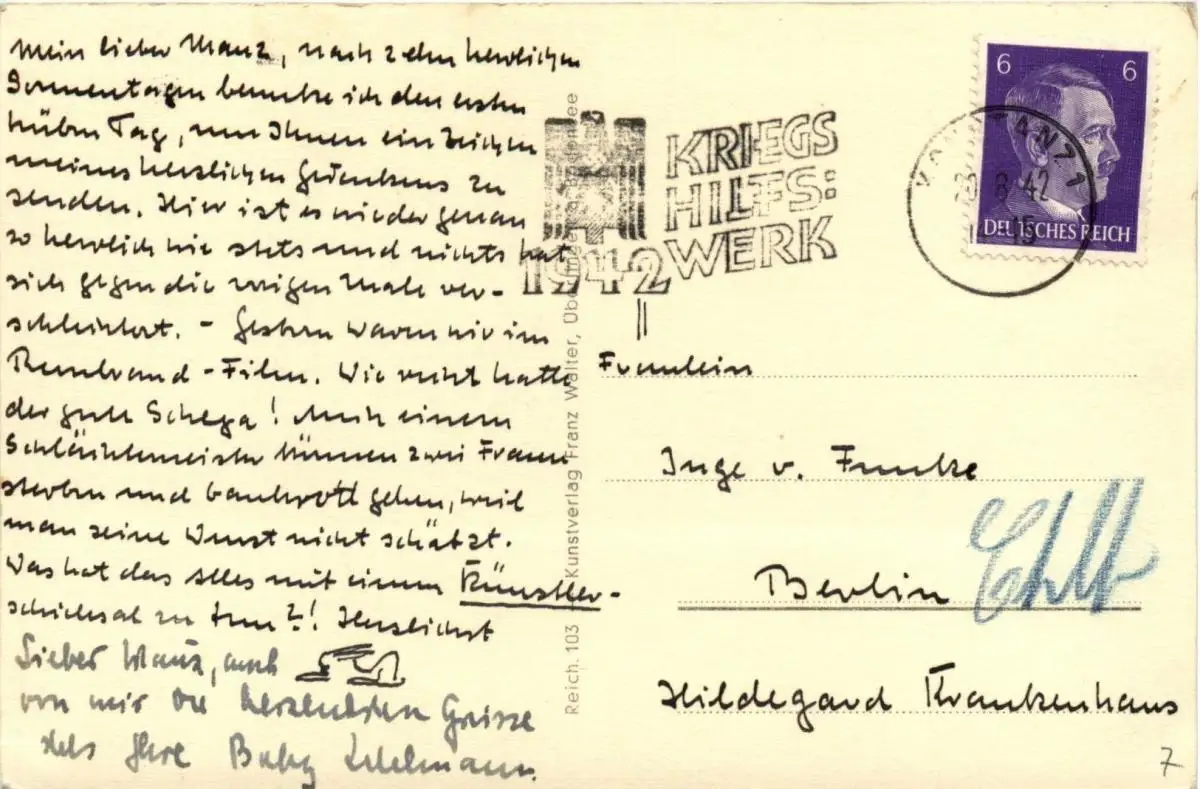 Mein lieber Mauz, nach zehn herrlichen
Sonnentagen benutze ich den ersten
trüben Tag, um Ihnen ein Zeichen
meines herzlichen Gedenkens zu
senden. Hier ist es wieder genau
so herrlich wie stets und nichts hat
sich gegen die vorigen Male ver-
schlechtert. - Gestern waren wir im
Rembrand-Film. Wie recht hatte
der gute Schega! Auch einem
Schlächtermeister können zwei Frauen
sterben und bankrott gehen, weil
man seine Wurst nicht schätzt.
Was hat das alles mit einem Künstler-
schicksal zu tun?! Herzlichst
Lieber Mauz, auch
von mir die herzlichsten Grüsse
stets Ihre Baby Edelmann.
Reich. 103 Kunstverlag Franz Walter, Überlingen a. Bodensee
KRIEGS
HILFS:
WERK
1942
6 6
DEUTSCHES REICH
KONSTANZ 1
23.8.42
15
Fräulein
Inge v. Funcke
Berlin
Hildegard Krankenhaus
7